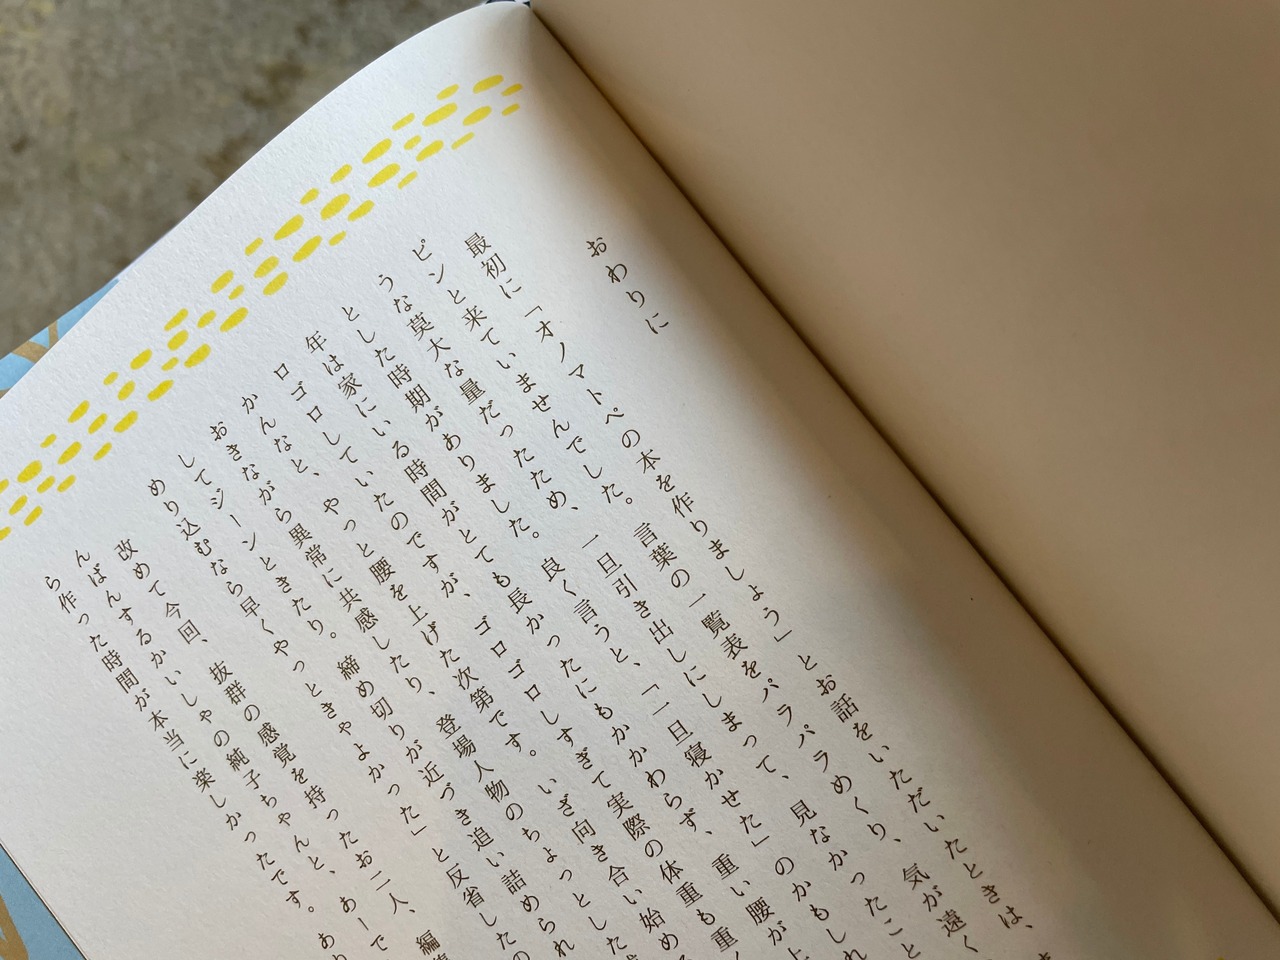 おわりに
最初に「オノマトペの本を作りましょう」とお話をいただいたときは、
ピンと来ていませんでした。言葉の一覧表をパラパラめくり、気が遠く
うな莫大な量だったため、一旦引き出しにしまって、見なかったこと
とした時期がありました。良く言うと、「一旦寝かせた」のかもしれ
年は家にいる時間がとても長かったにもかかわらず、重い腰が上
ロゴロしていたのですが、ゴロゴロしすぎて実際の体重も重く
かんなと、やっと腰を上げた次第です。いざ向き合い始め
おきながら異常に共感したり、登場人物のちょっとした
してジーンときたり。締め切りが近づき追い詰められ
めり込むなら早くやっときゃよかった」と反省したの
改めて今回、抜群の感覚を持ったお二人、編
んばんするかいしゃの純子ちゃんと、あーで
ら作った時間が本当に楽しかったです。あり